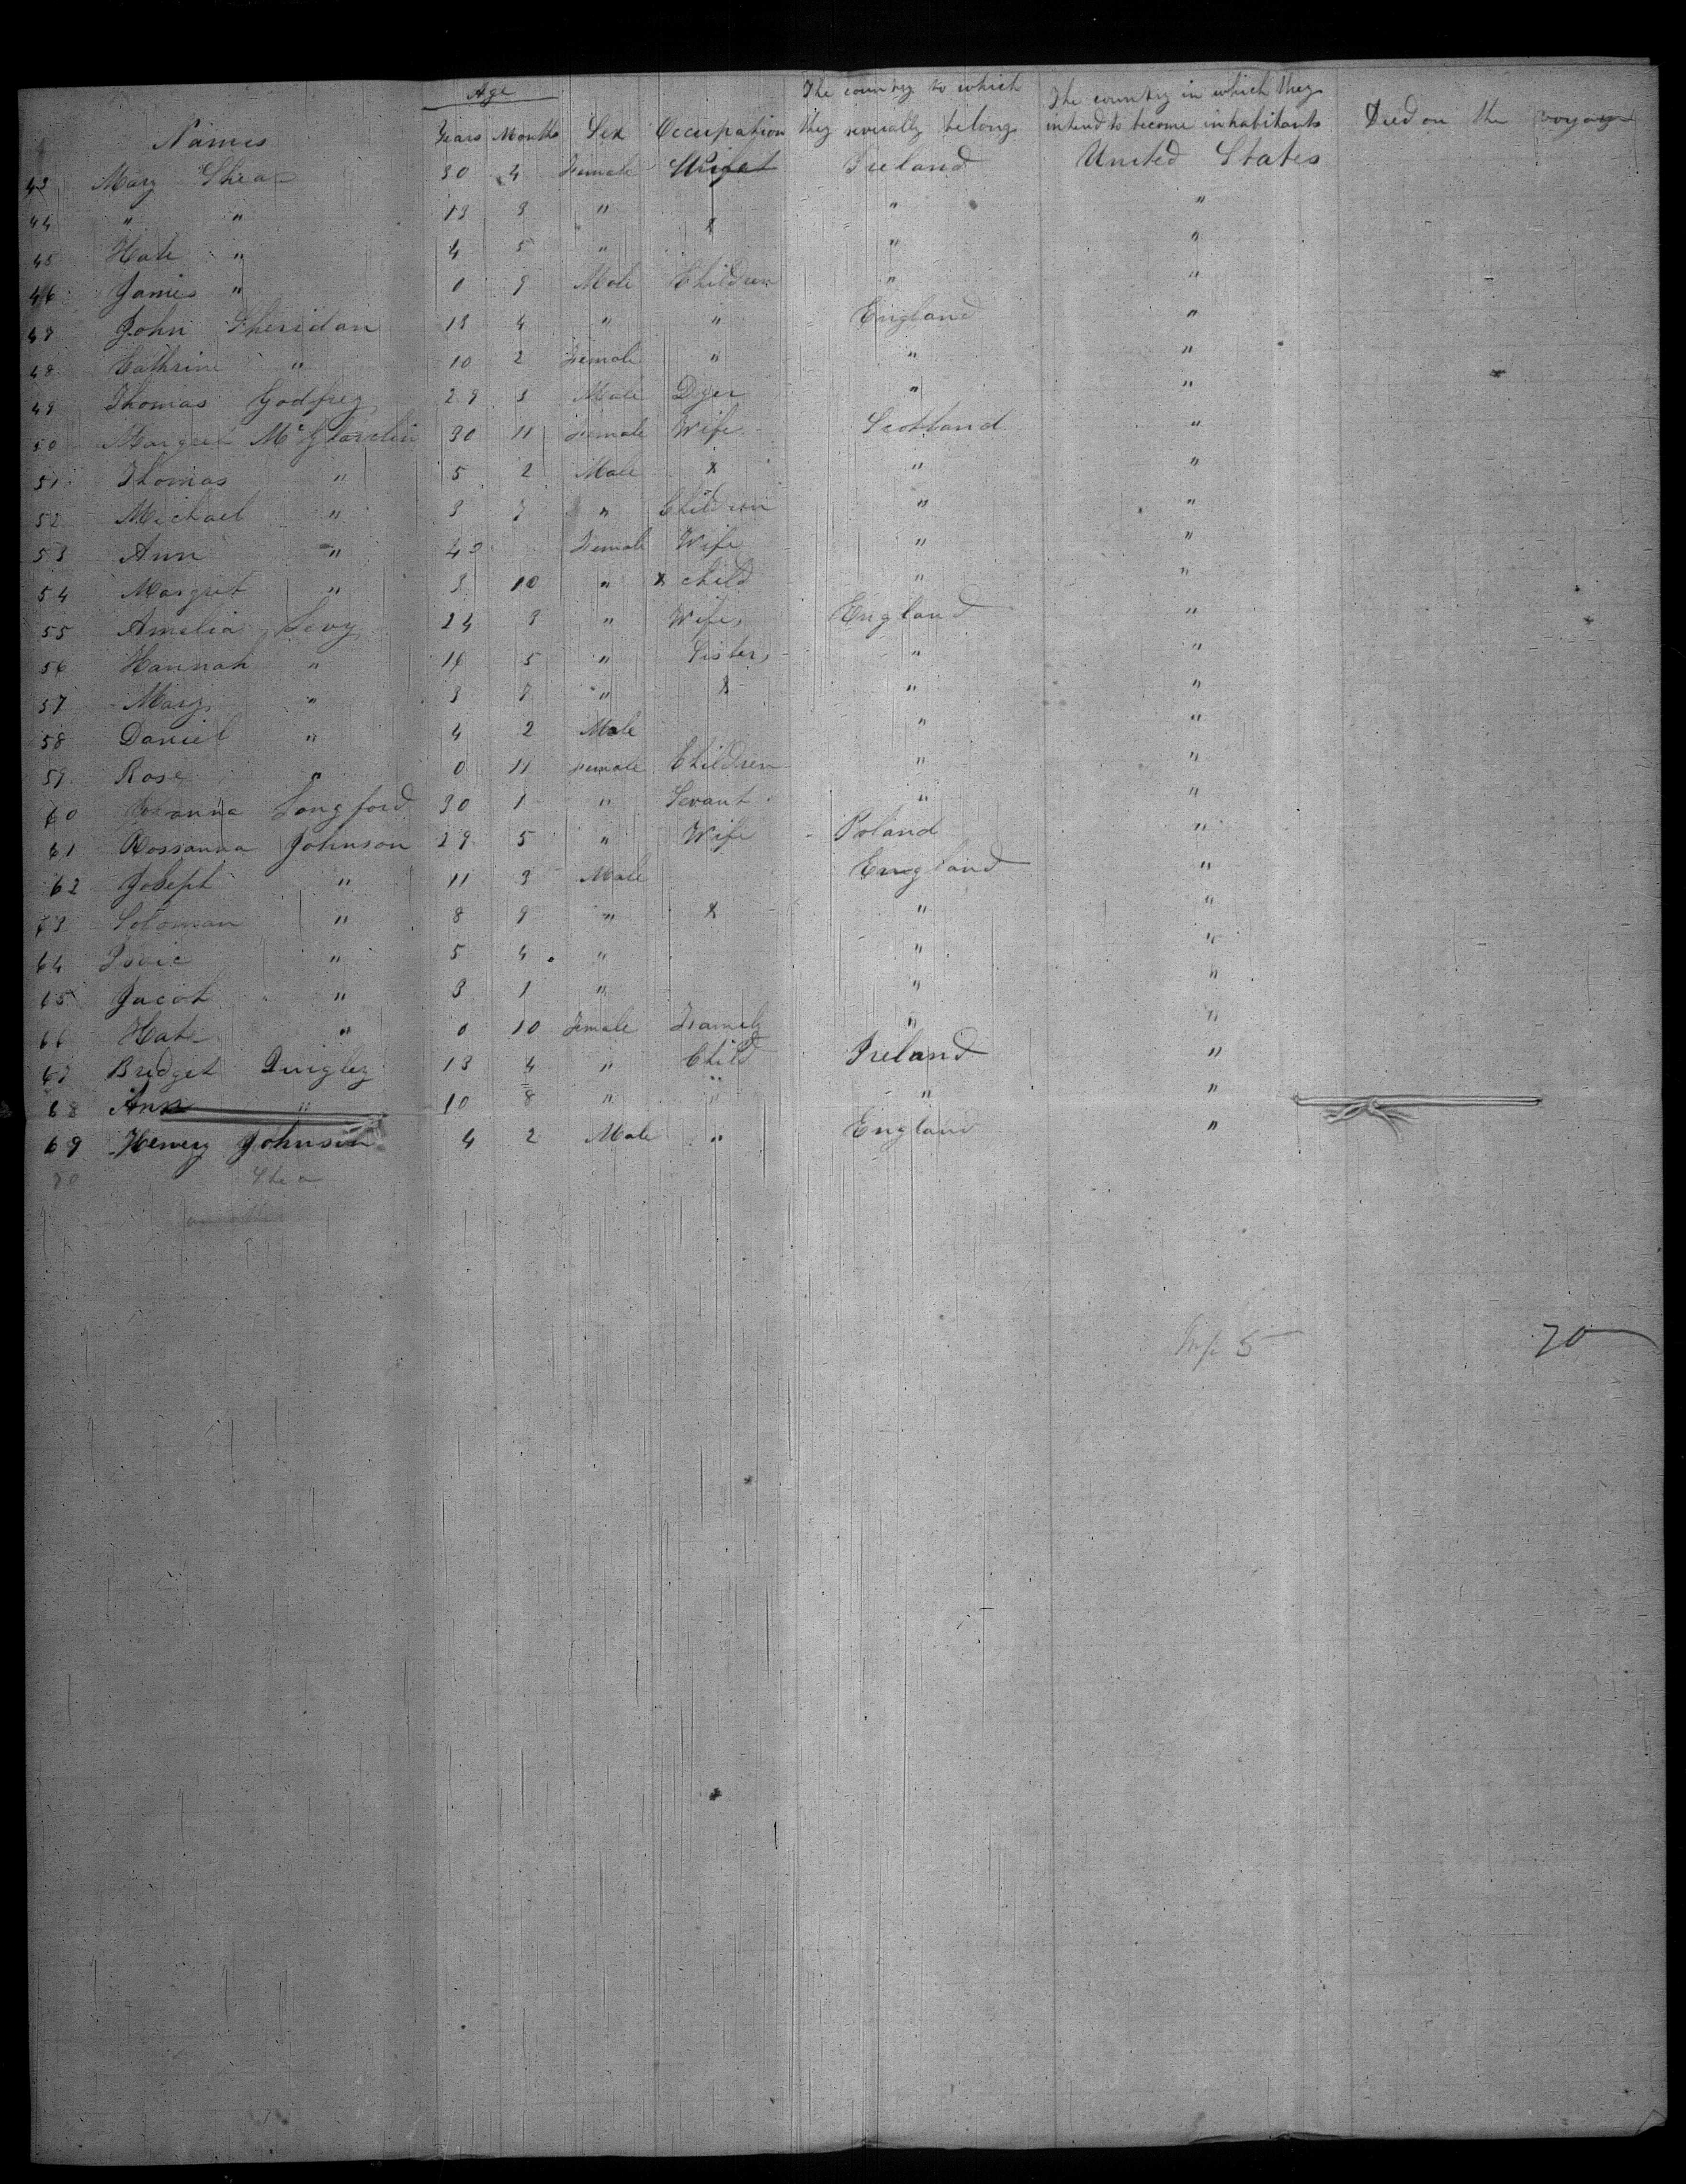 Age
The country to which
The country in which they
Names Years Months Sex Occupation they severally belong intend to become inhabitants Died on the voyage
43 Mary Shea 30 4 Female Ireland United States
44 " " 13 3 " " "
45 Kate " 4 5 " " "
46 James " 0 9 Male Children " "
47 John Sheridan 13 4 " " England "
48 Cathrine " 10 2 Female " " "
49 Thomas Godfrey 29 3 Male Dyer " "
50 Margret 30 11 Female Wife Scotland "
51 Thomas " 5 2 Male x " "
52 Michael " 3 7 " Children " "
53 Ann " 40 Female Wife " "
54 Margret " 3 10 " x child " "
55 Amelia Levy 24 3 " Wife England "
56 Hannah " 16 5 " Sister " "
57 Mary " 3 7 " x " "
58 Daniel " 4 2 Male " "
59 Rose " 0 11 Female Children " "
60 Longford 30 1 " Sevant " "
61 Rossanna Johnson 29 5 " Wife Poland "
62 Joseph " 11 3 Male England "
63 Soloman " 8 9 " x " "
64 Isaic " 5 4 " " "
65 Jacob " 3 1 " " "
66 Kate " 0 10 Female Family " "
67 Bridget Quigley 13 4 " Child Ireland "
68 Ann " 10 8 " " " "
69 Henery Johnson 4 2 Male " England "
70 Shea
5 70